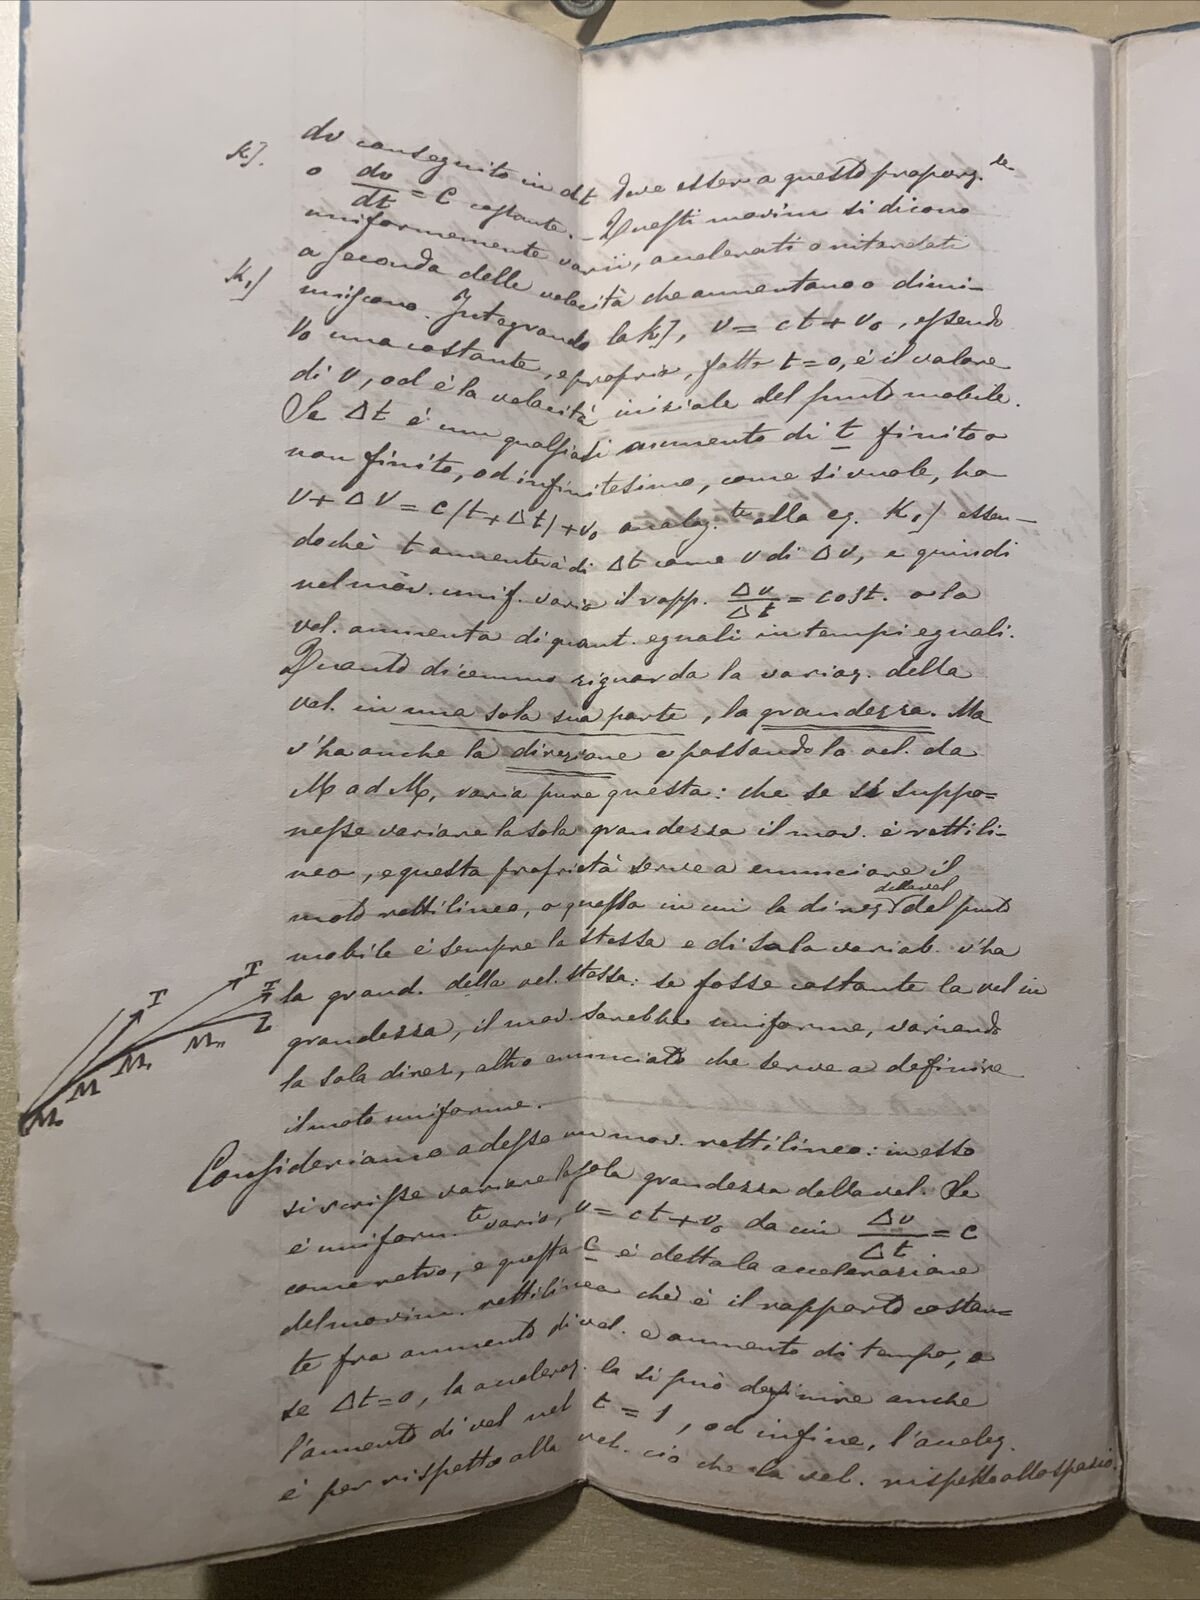 dv conseguito in dt deve essere a questo proporz.le
K]. o dv/dt = C costante. – Questi movim si dicono
uniformemente varii, accelerati o ritardati
a seconda delle velocità che aumentano o dimi-
K,] nuiscono. Integrando la K], v = ct + v₀, essendo
v₀ una costante, e proprio, fatto t = 0, è il valore
di v, od è la velocità iniziale del punto mobile.
Se Δt è un qualsiasi aumento di t finito o
non finito, od infinitesimo, come si vuole, ha
v + Δv = c(t + Δt) + v₀ analog.te alla eq. K,] essen-
dochè t aumenterà di Δt come v di Δv, e quindi
nel mov. unif. vario il rapp. Δv/Δt = cost. o la
vel. aumenta di quant. eguali in tempi eguali.
Quanto dicemmo riguarda la variaz. della
vel. in una sola sua parte, la grandezza. Ma
v'ha anche la direzione e passando la vel. da
M ad M, varia pure questa: che se si suppo=
nesse variare la sola grandezza il mov. è rettili-
neo, e questa proprietà serve a enunciare il
moto rettilineo, o quello in cui la direz della vel del punto
mobile è sempre la stessa e di sola variab. v'ha
la grand. della vel. stessa: se fosse costante la vel in
grandezza, il mov. sarebbe uniforme, variando
la sola direz, altro enunciato che serve a definire
il moto uniforme.
Consideriamo adesso un mov. rettilineo: in esso
si scrisse variare la sola grandezza della vel. Se
è uniform.te vario, v = ct + v₀ da cui Δv/Δt = c
come retro, e questa c è detta la accelerazione
del movim. rettilineo chè è il rapporto costan=
te fra aumento di vel. e aumento di tempo, o
se Δt = 0, la acceleraz. la si può definire anche
l'aumento di vel nel t = 1, od infine, l'acceleg.
è per rispetto alla vel. ciò che la vel. rispetto allo spazio.
T
T
T
M₀ M M, M₁₁